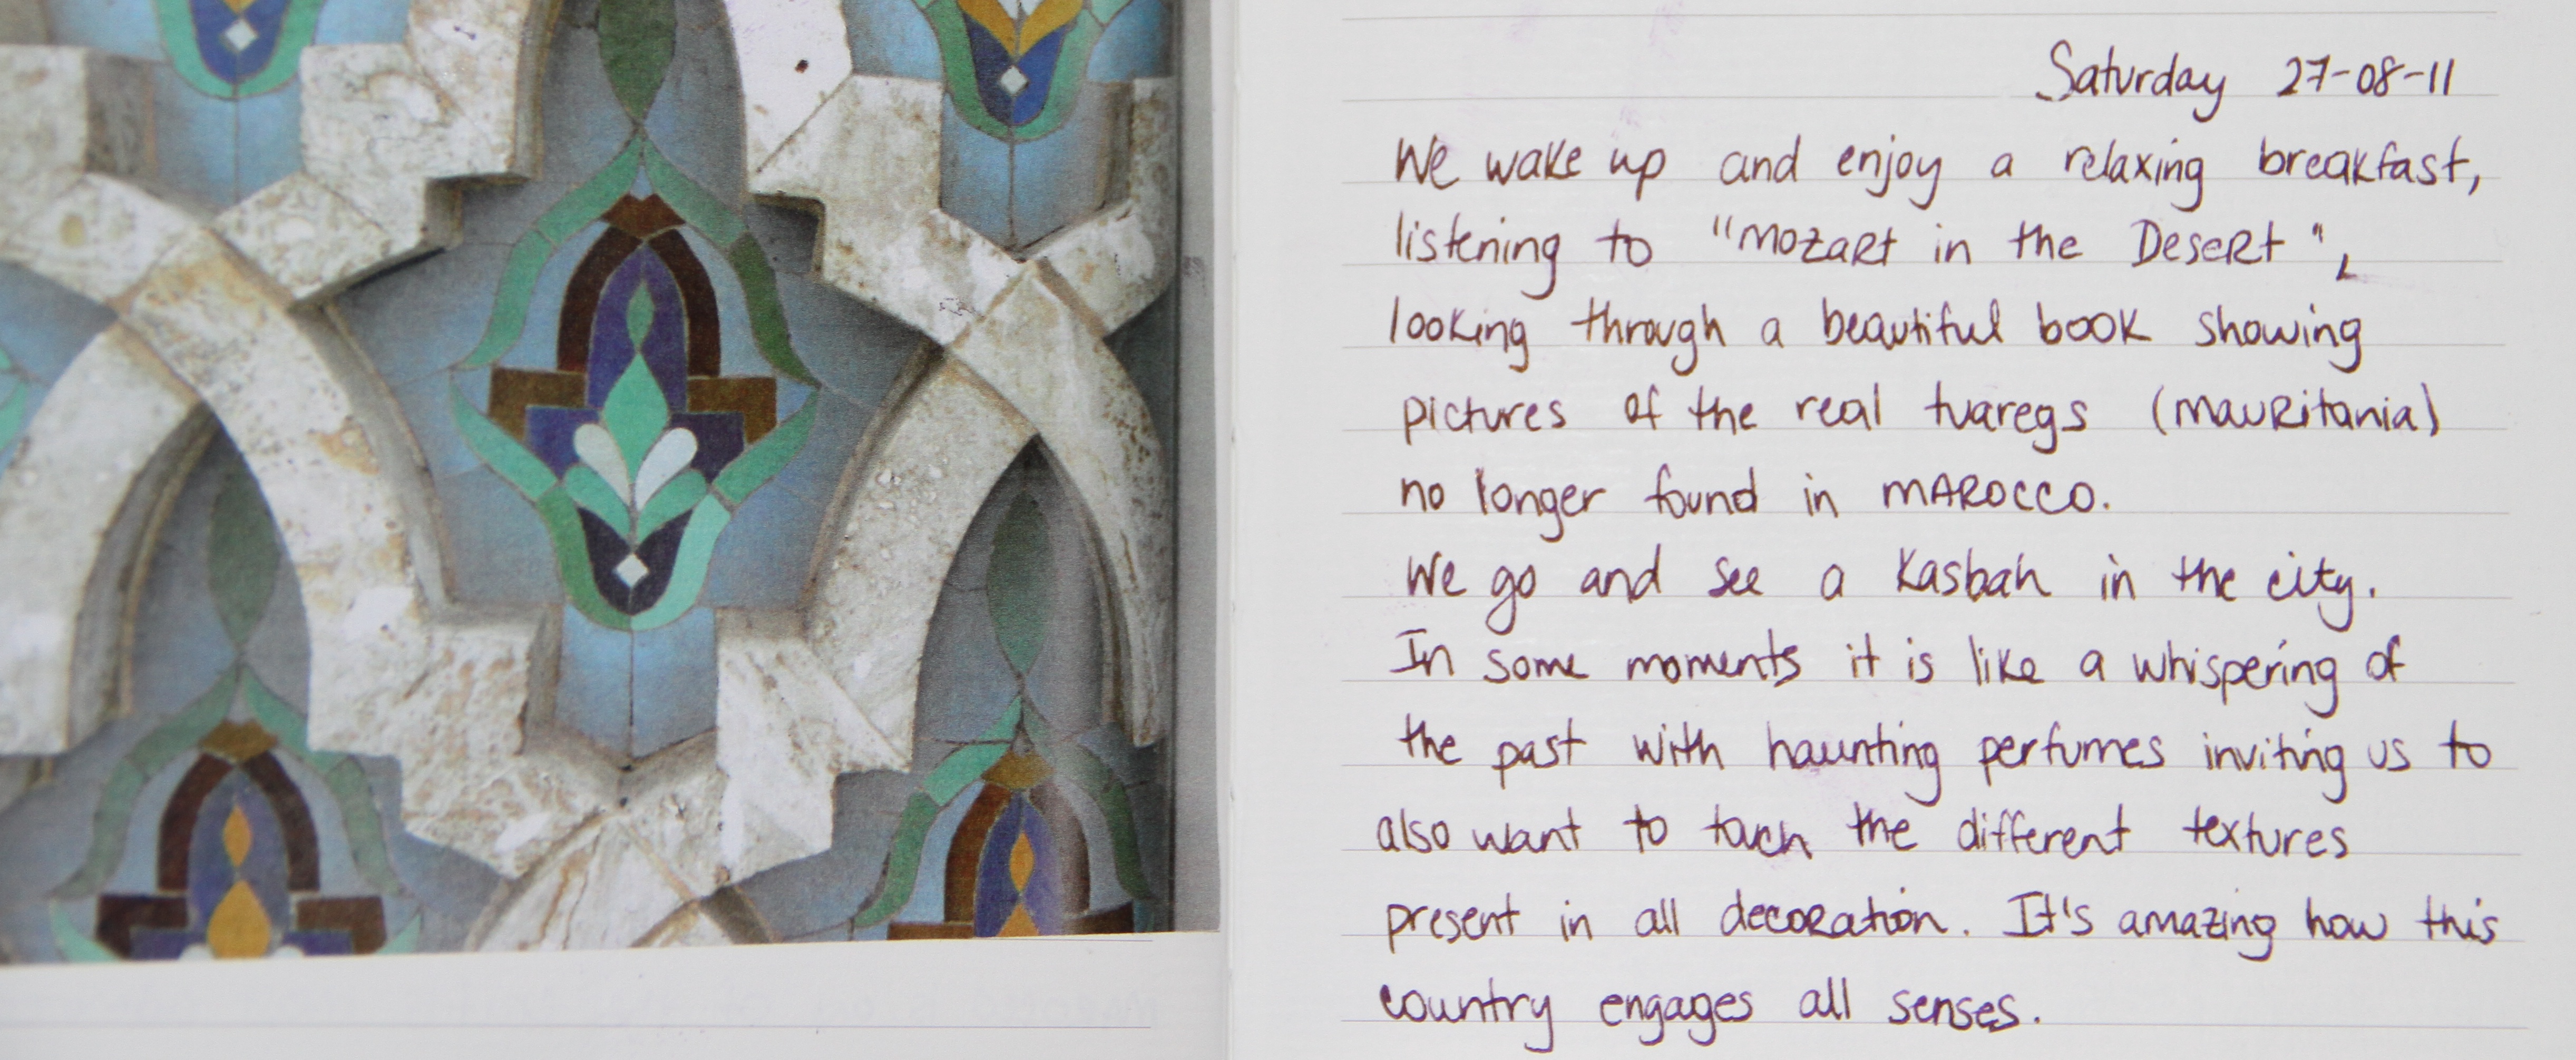 Saturday 27-08-11
We wake up and enjoy a relaxing breakfast,
listening to "Mozart in the Desert",
looking through a beautiful book showing
pictures of the real tuaregs (Mauritania)
no longer found in MAROCCO.
We go and see a Kasbah in the city.
In some moments it is like a whispering of
the past with haunting perfumes inviting us to
also want to touch the different textures
present in all decoration. It's amazing how this
country engages all senses.